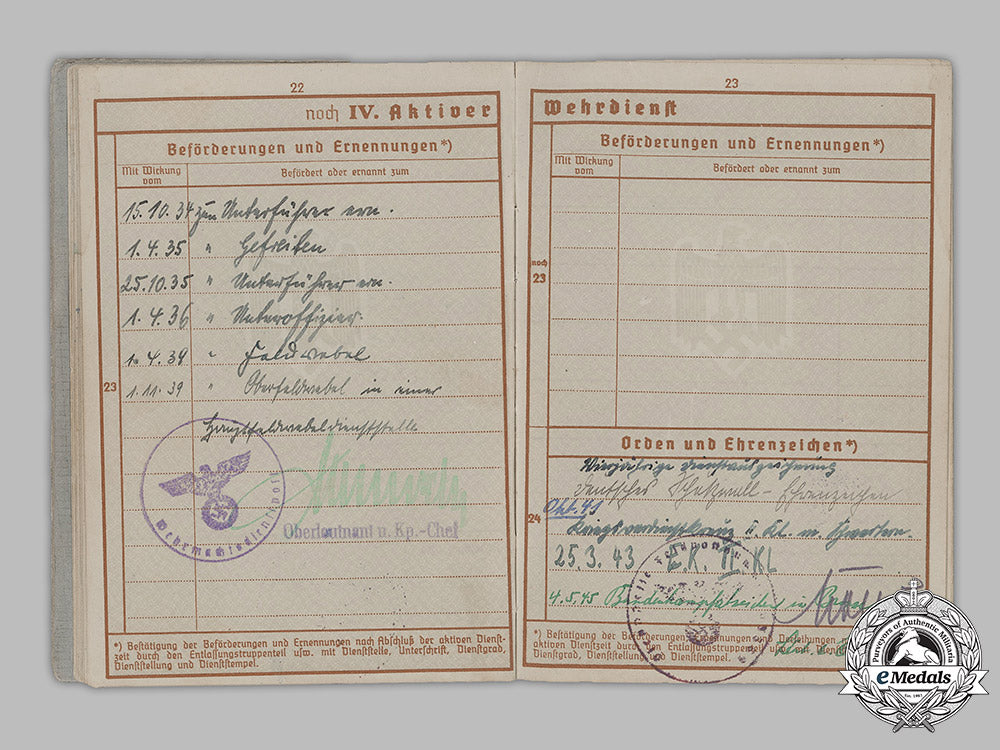 22
noch IV. Aktiver
Beförderungen und Ernennungen*)
Mit Wirkung vom
Befördert oder ernannt zum
15.10.34 zum Unterführer ern.
1.4.35 " Gefreiten
25.10.35 " Unterführer ern.
1.4.36 " Unteroffizier.
1.4.39 " Feldwebel
1.11.39 " Oberfeldwebel in einer
23
Hauptfeldwebeldienststelle
Wehrmachtsdienstpost
Oberleutnant u. Kp.-Chef
*) Bestätigung der Beförderungen und Ernennungen nach Abschluß der aktiven Dienst-
zeit durch den Entlassungstruppenteil usw. mit Dienststelle, Unterschrift, Dienstgrad,
Dienststellung und Dienststempel.
23
Wehrdienst
Beförderungen und Ernennungen*)
Mit Wirkung vom
Befördert oder ernannt zum
noch
23
Orden und Ehrenzeichen*)
Vierjährige Dienstauszeichnung
Deutsches Schutzwall-Ehrenzeichen
Okt. 41
24
Kriegsverdienstkreuz II. Kl. m. Schwertern.
25.3.43 E.K. II. KL
4.5.45
*) Bestätigung der Beförderungen, Ernennungen und Verleihungen
aktiven Dienstzeit durch den Entlassungstruppenteil usw. mit
Dienstgrad, Dienststellung und Dienststempel.
Purveyors of Authentic Militaria
eMedals